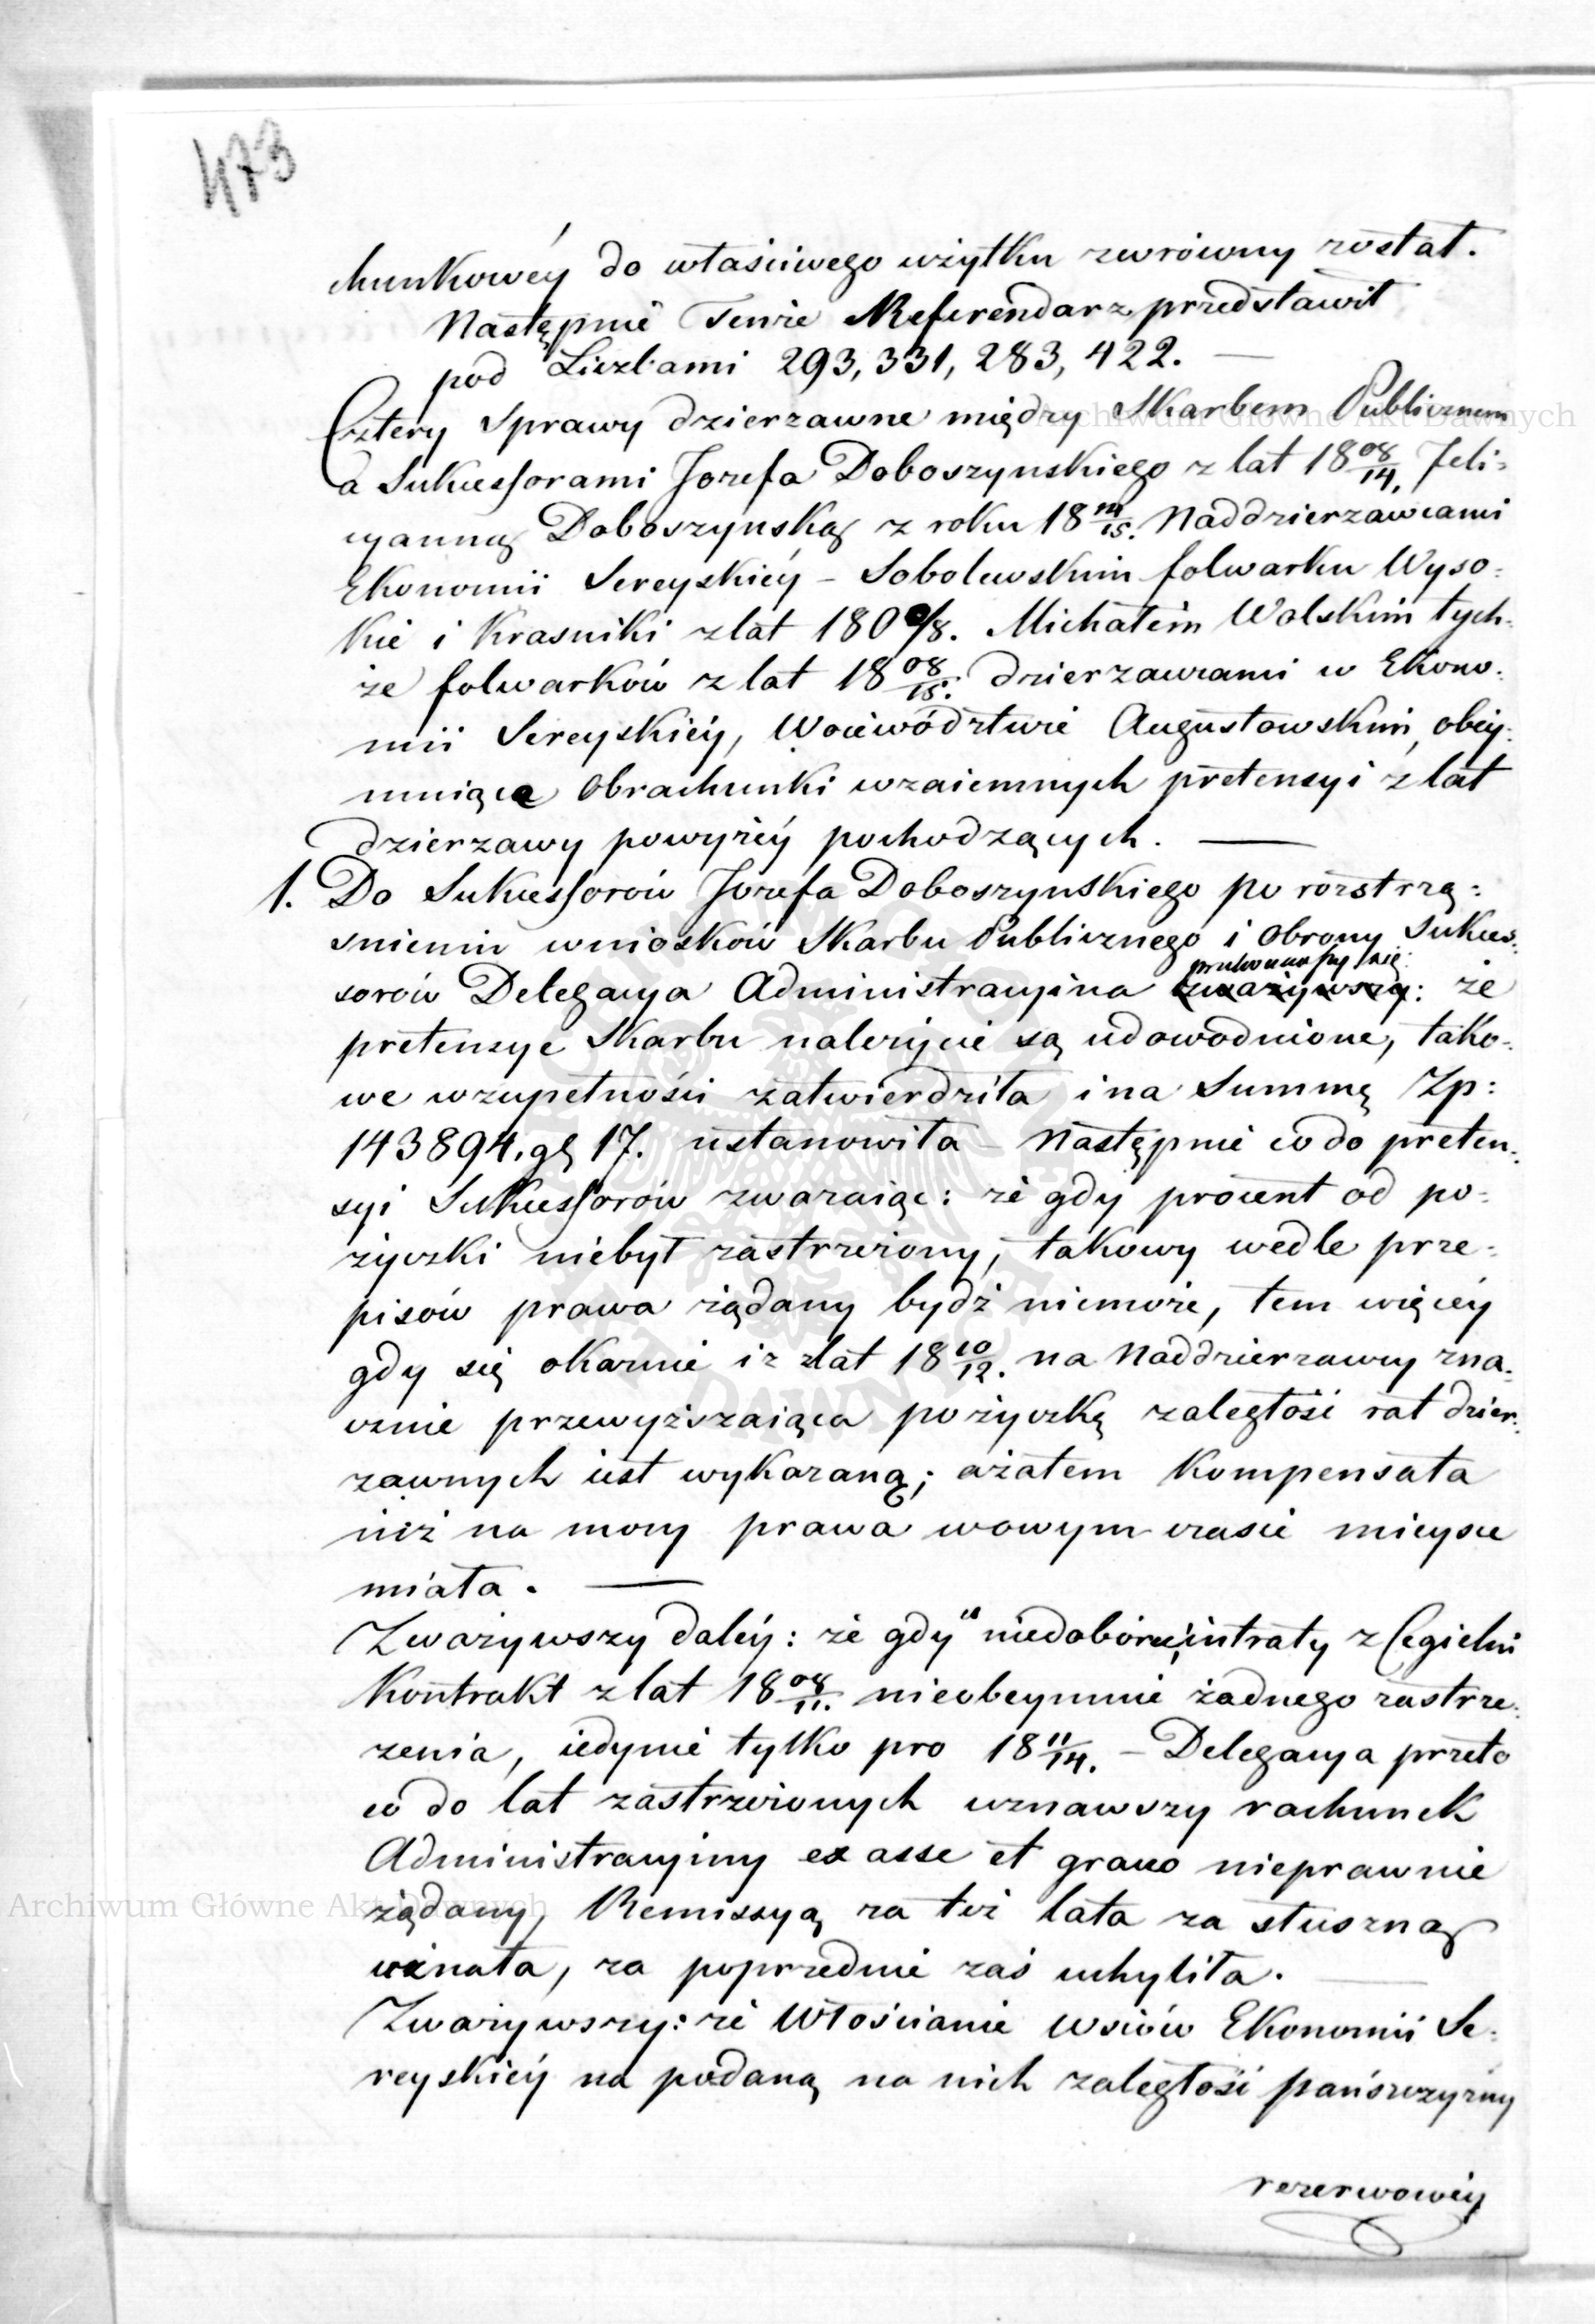 473
chunkowéy do właściwego użytku zwrócony został.
Następnie Tenże Referendarz przedstawił
pod Liczbami 293, 331, 283, 422. —
Cztery Sprawy dzierzawne między Skarbem Publicznem
a Sukcessorami Jozefa Doboszynskiego z lat 18 08/14, Feli=
cyanną Doboszynską z roku 18 14/15. Naddzierzawcami
Ekonomii Sereyskiéy – Sobolewskim folwarku Wyso=
kie i Krasniki z lat 180 /8. Michałem Wolskim tych=
że folwarków z lat 18 08/15. dzierzawcami w Ekono=
mii Sereyskiéy, Woiewództwie Augustowskim, obey=
muiące Obrachunki wzaiemnych pretensyi z lat
dzierzawy powyżéy pochodzących. —
1. Do Sukcessorów Jozefa Doboszynskiego po rozstrzą=
śnieniu wniosków Skarbu Publicznego i Obrony Sukces=
przekonawszy się:
sorów Delegacya Administracyina zważywszy: że
pretensye Skarbu należycie są udowodnione, tako=
we w zupełności zatwierdziła i na Summę Zp:
143894. gl 17. ustanowiła – Następnie co do preten=
syi Sukcessorów zwazaiąc: że gdy procent od po=
życzki niebył zastrzeżony, takowy wedle prze=
pisów prawa żądany bydź niemoże, tem więcéy
gdy się okazuie iż z lat 18 10/12. na Naddzierzawcy zna=
cznie przewyższaiąca pożyczkę zaległość rat dzier=
zawnych iest wykazaną; a zatem Kompensata
iuż na mocy prawa w owym czasie mieysce
miała. —
Zważywszy daléy: że gdy niedoboru intraty z Cegielni
Kontrakt z lat 18 08/11. nieobeymuie żadnego zastrze=
żenia, iedynie tylko pro 18 11/14. – Delegacya przeto
co do lat zastrzeżonych uznawszy rachunek
Administracyiny ex asse et grano nieprawnie
żądany, Remissyą za też lata za słuszną
uznała, za poprzednie zaś uchyliła. —
Zważywszy: że Włościanie wsiów Ekonomii Se=
reyskiéy na podaną na nich zaległość pańszczyzny
rezerwowéy
Archiwum Główne Akt Dawnych
Archiwum Główne Akt Dawnych